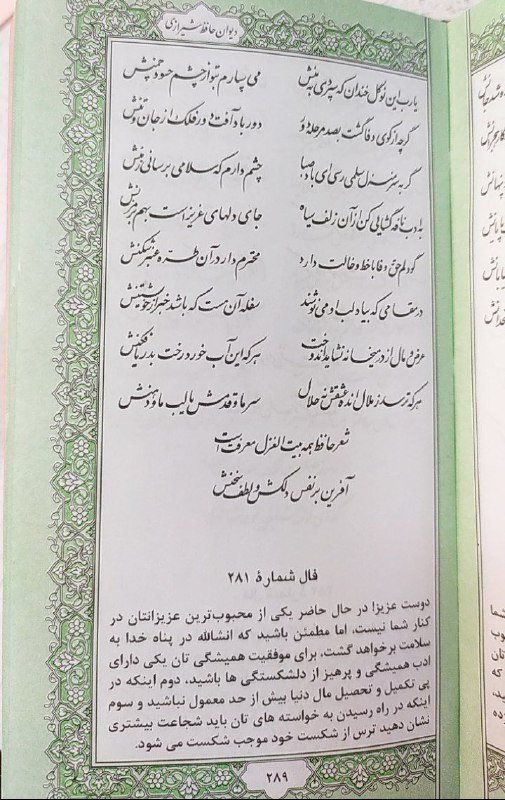 دیوان حافظ شیرازی
یارب این نوگل خندان که سپردی به منش می سپارم به تو از چشم حسود چمنش
گرچه از کوی وفا گشت به صد مرحله دور دور باد آفت دور فلک از جان و تنش
گر به سرمنزل سلمی رسی ای باد صبا چشم دارم که سلامی برسانی ز منش
به ادب نافه گشایی کن از آن زلف سیاه جای دلهای عزیز است بهم بر مزنش
گو دلم حق وفا با خط و خالت دارد محترم دار در آن طره عنبر شکنش
در مقامی که بیاد لب او می نوشند سفله آن مست که باشد خبر از خویشتنش
عرض و مال از در میخانه نشاید اندوخت هر که این آب خورد رخت به دریا فکنش
هر که ترسد ز ملال انده عشقش نه حلال سر ما و قدمش یا لب ما و دهنش
شعر حافظ همه بیت الغزل معرفت است
آفرین بر نفس دلکش و لطف سخنش
فال شمارهٔ ۲۸۱
دوست عزیز! در حال حاضر یکی از محبوب‌ترین عزیزانتان در
کنار شما نیست، اما مطمئن باشید که انشالله در پناه خدا به
سلامت برخواهد گشت، برای موفقیت همیشگی تان یکی دارای
ادب همیشگی و پرهیز از دلشکستگی ها باشید، دوم اینکه در
پی تکمیل و تحصیل مال دنیا بیش از حد معمول نباشید و سوم
اینکه در راه رسیدن به خواسته های تان باید شجاعت بیشتری
نشان دهید ترس از شکست خود موجب شکست می شود.
۲۸۹